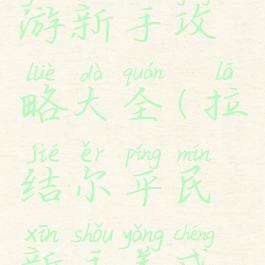 游新手攻
lüè dà quán lā
略大全(拉
jié ěr píng mín
结尔平民
xīn shǒu yǎng chéng
新手养成